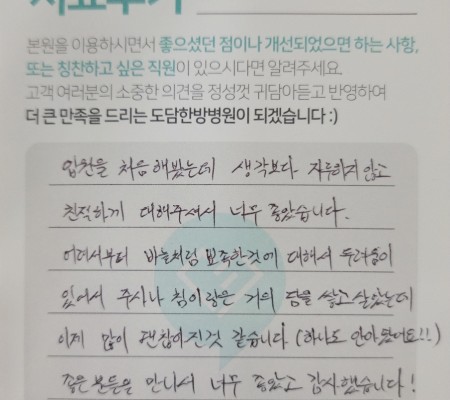 치료후기
본원을 이용하시면서 좋으셨던 점이나 개선되었으면 하는 사항,
또는 칭찬하고 싶은 직원이 있으시다면 알려주세요.
고객 여러분의 소중한 의견을 정성껏 귀담아듣고 반영하여
더 큰 만족을 드리는 도담한방병원이 되겠습니다 :)
입원을 처음해봤는데 생각보다 지루하지 않고
친절하게 대해주셔서 너무 좋았습니다.
어려서부터 바늘처럼 뾰족한것에 대해서 두려움이
있어서 주사나 침이랑은 거의 담을 쌓고 살았는데
이제 많이 괜찮아진것 같습니다 (하나도 안아팠어요!!)
좋은 분들을 만나서 너무 좋았고 감사했습니다!